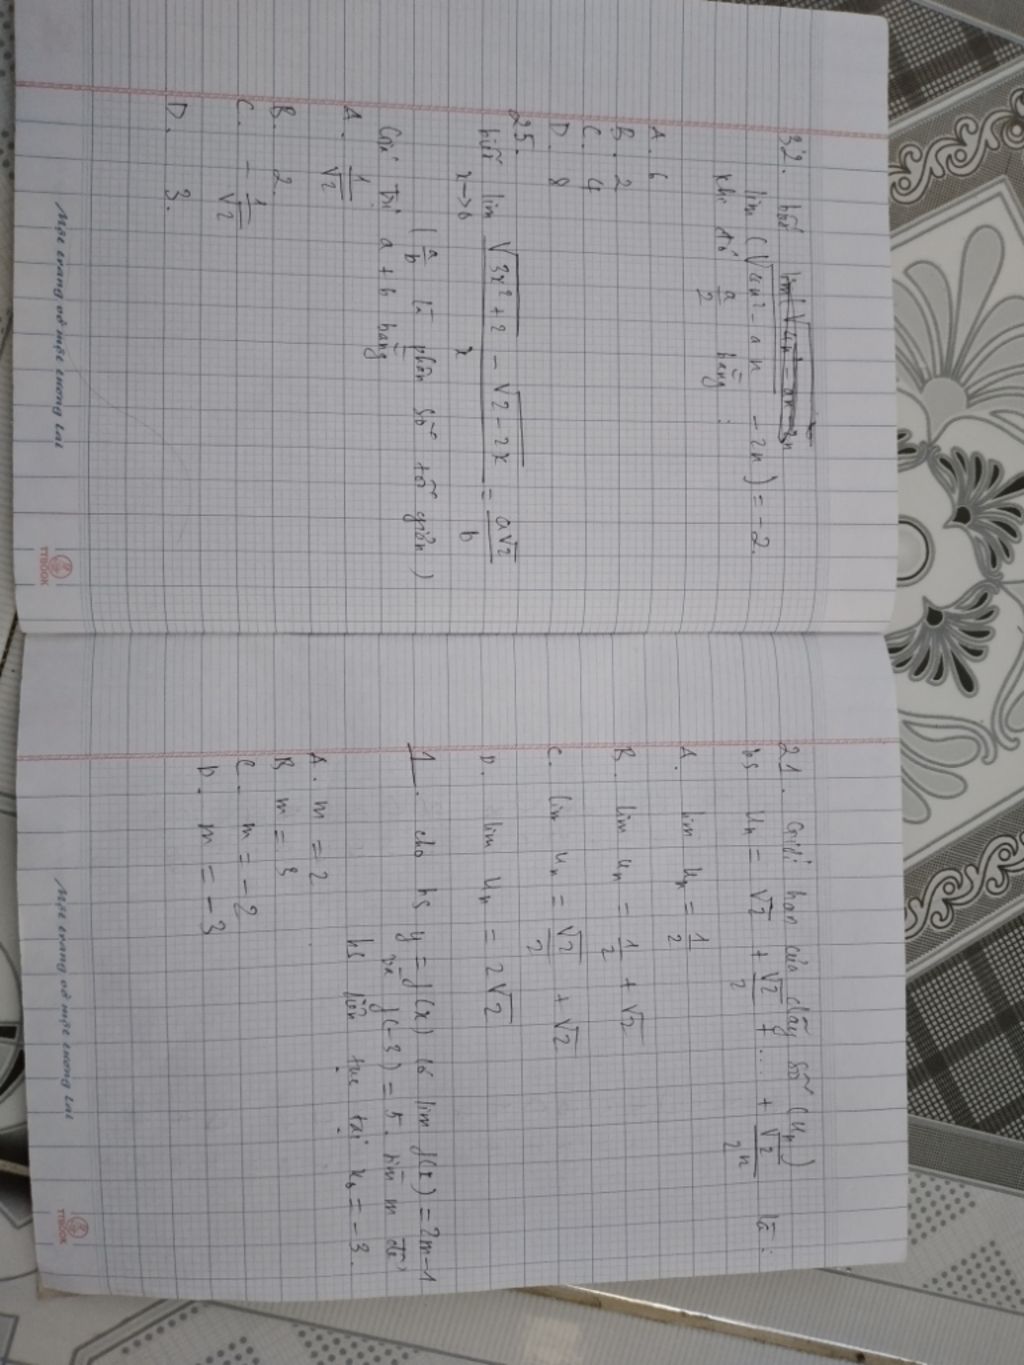 32. biết lim (√4n² - an - 2n
lim (√4n² - an - 2n) = -2.
khi đó a/2 bằng :
A. 6
B. 2
C. 4
D. 8
25.
biết lim x→0 (√3x²+2 - √2-2x)/x = a√2/b
(a/b là phân số tối giản)
Giá Trị a + b bằng
A. 1/√2
B. 2.
C. - 1/√2
D. 3.
Một trang vở một tương lai
TTBOOK
21. Giới hạn của dãy số (un)
bs un = √2 + √2/2 + ... + √2/2ⁿ là :
A. lim un = 1/2
B. lim un = 1/2 + √2
C. lim un = √2/2 + √2
D. lim un = 2√2
1. cho hs y = f(x) có lim f(x) = 2m-1
và f(-3) = 5. tìm m để
hs liên tục tại x₀ = -3.
A. m = 2
B m = 3
C. m = -2
D. m = -3
Một trang vở một tương lai
TTBOOK